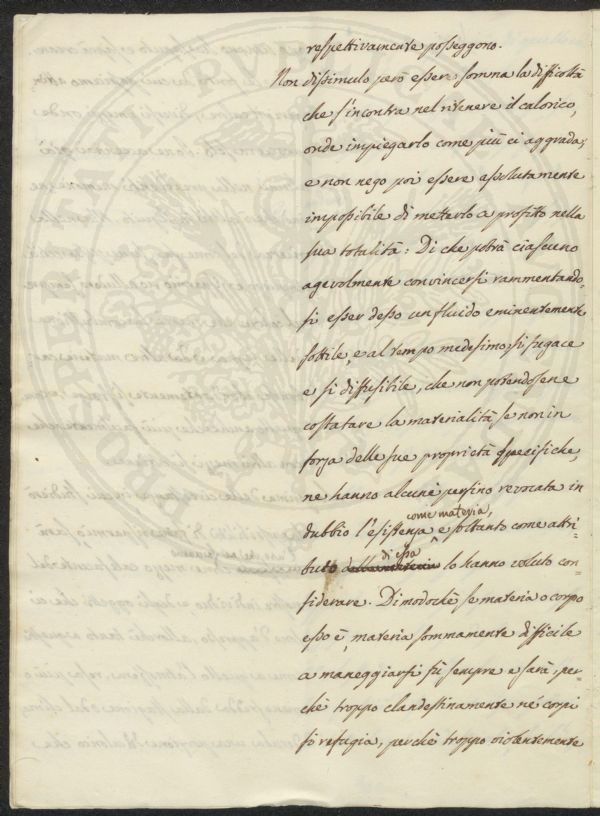 respettivamente posseggono.
Non dissimulo però essere somma la difficoltà
che s'incontra nel ritenere il calorico,
onde impiegarlo come più ci aggrada;
e non nego poi essere assolutamente
impossibile di metterlo a profitto nella
sua totalità: Di che potrà ciascuno
agevolmente convincersi rammentando-
si esser desso un fluido eminentemente
sottile, e al tempo medesimo si fugace
e si diffusibile, che non potendosene
costatare la materialità se non in
forza delle sue proprietà specifiche,
ne hanno alcuni perfino revocata in
come materia,
dubbio l'esistenza e soltanto come attri-
di essa
buto della materia lo hanno voluto con-
siderare. Dimodochè se materia o corpo
esso è, materia sommamente difficile
a maneggiarsi fù sempre e sarà, per-
chè troppo clandestinamente né corpi
si refugia, perchè troppo violentemente